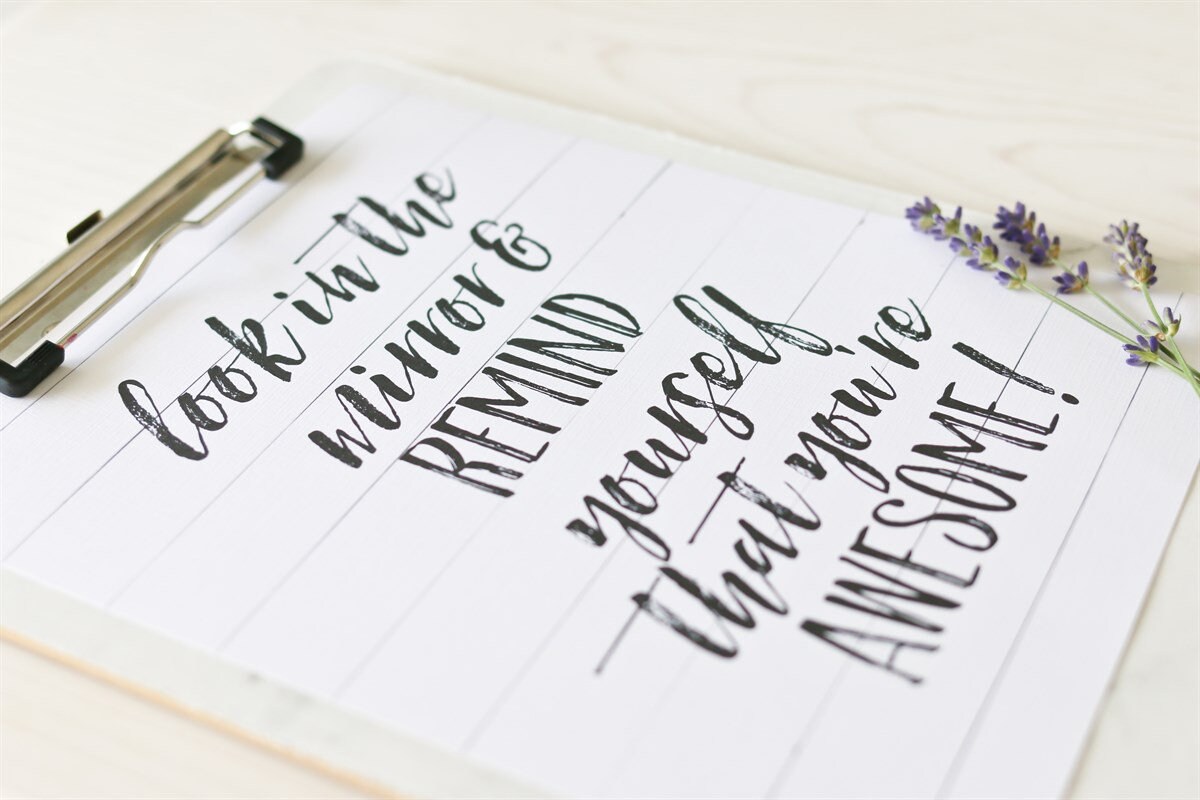 look in the
mirror &
REMIND
yourself
that you're
AWESOME!